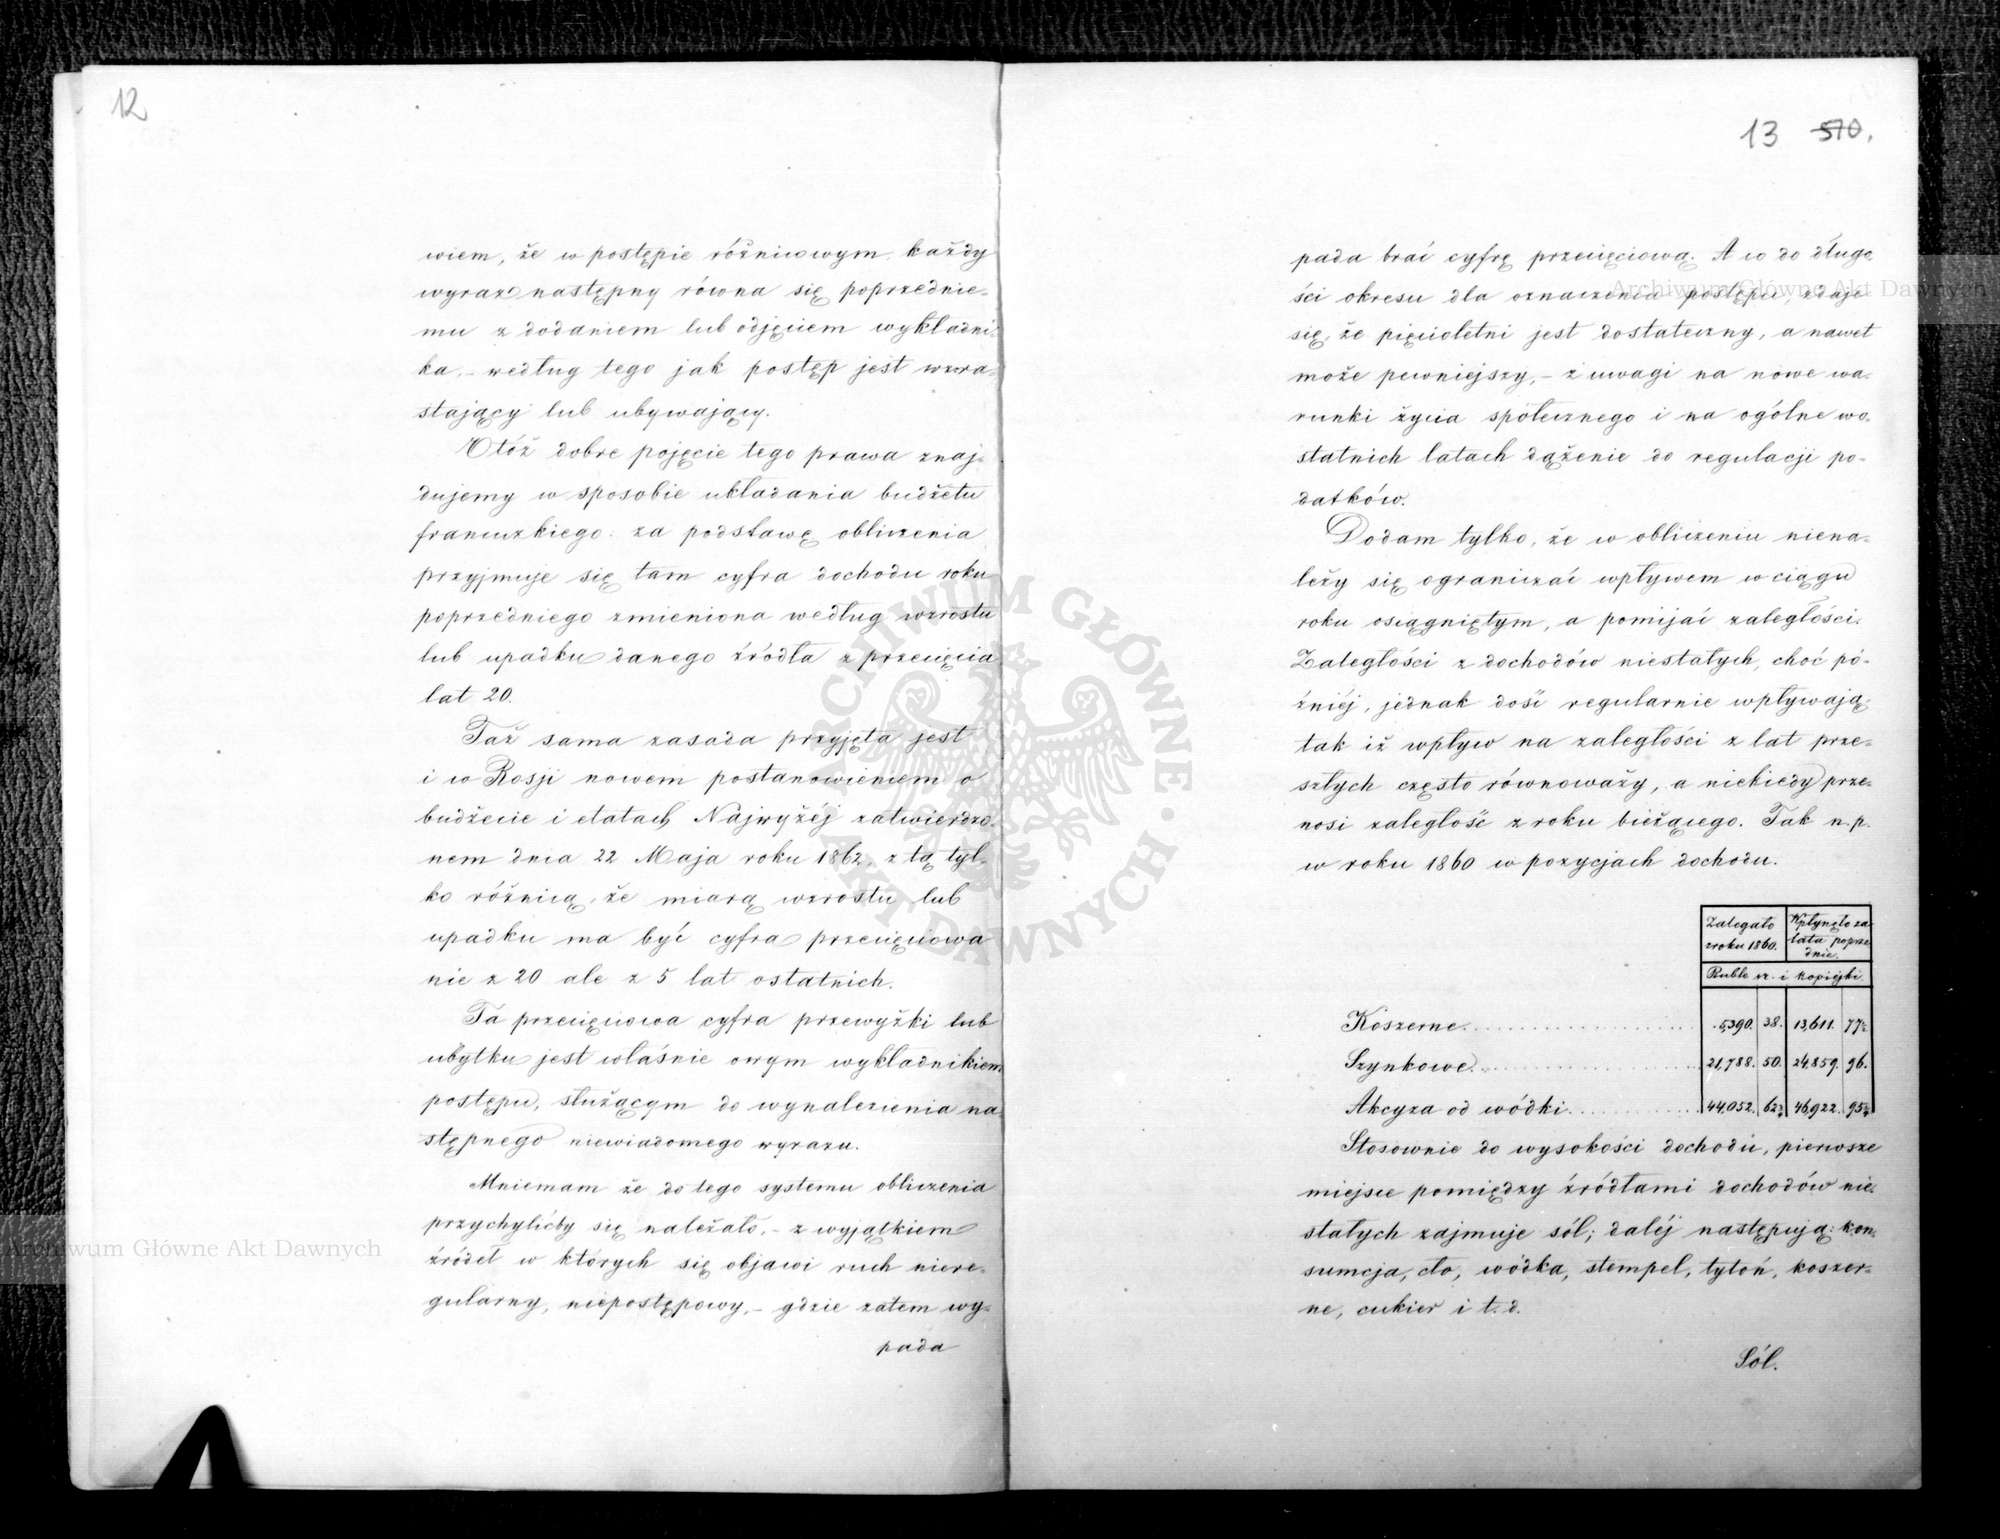 12
wiem, że w postępie różnicowym, każdy
wyraz następny równa się poprzednie-
mu z dodaniem lub odjęciem wykładni-
ka, – według tego jak postęp jest wzra-
stający lub ubywający.
Otóż dobre pojęcie tego prawa znaj-
dujemy w sposobie układania budżetu
francuzkiego: za podstawę obliczenia
przyjmuje się tam cyfra dochodu roku
poprzedniego zmieniona według wzrostu
lub upadku danego źródła z przecięcia
lat 20.
Taż sama zasada przyjęta jest
i w Rosji nowem postanowieniem o
budżecie i etatach Najwyżéj zatwierdzo-
nem dnia 22 Maja roku 1862, z tą tyl-
ko różnicą, że miarą wzrostu lub
upadku ma być cyfra przecięciowa
nie z 20 ale z 5 lat ostatnich.
Ta przecięciowa cyfra przewyżki lub
ubytku jest właśnie owym wykładnikiem
postępu, służącym do wynalezienia na
stępnego niewiadomego wyrazu.
Mniemam że do tego systemu obliczenia
przychylićby się należało, – z wyjątkiem
źródeł w których się objawi ruch niere-
gularny, niepostępowy, – gdzie zatem wy-
pada
13 570.
pada brać cyfrę przecięciową. A co do długo
ści okresu dla oznaczenia postępu, zdaje
się, że pięcioletni jest dostateczny, a nawet
może pewniejszy, – z uwagi na nowe wa-
runki życia społecznego i na ogólne wo-
statnich latach dążenie do regulacji po-
datków.
Dodam tylko, że w obliczeniu niena-
leży się ograniczać wpływem w ciągu
roku osiągniętym, a pomijać zaległości.
Zaległości z dochodów niestałych, choć pó-
źniéj, jednak dość regularnie wpływają
tak iż wpływ na zaległości z lat prze-
szłych często równoważy, a niekiedy prze-
nosi zaległość z roku bieżącego. Tak n.p.
w roku 1860 w pozycjach dochodu.
Zalegało z roku 1860. Wpłynęło za lata poprzednie.
Ruble sr. i kopiejki
Koszerne 5,390. 38. 13,611. 77½
Szynkowe 21,788. 50. 24,859. 96.
Akcyza od wódki 44,052. 62½ 46,922. 95½
Stosownie do wysokości dochodu, pierwsze
miejsce pomiędzy źródłami dochodów nie-
stałych zajmuje sól; daléj następują: kon-
sumcja, cło, wódka, stempel, tytoń, koszer-
ne, cukier i t. d.
Sól.
Archiwum Główne Akt Dawnych
Archiwum Główne Akt Dawnych
ARCHIWUM GŁÓWNE AKT DAWNYCH